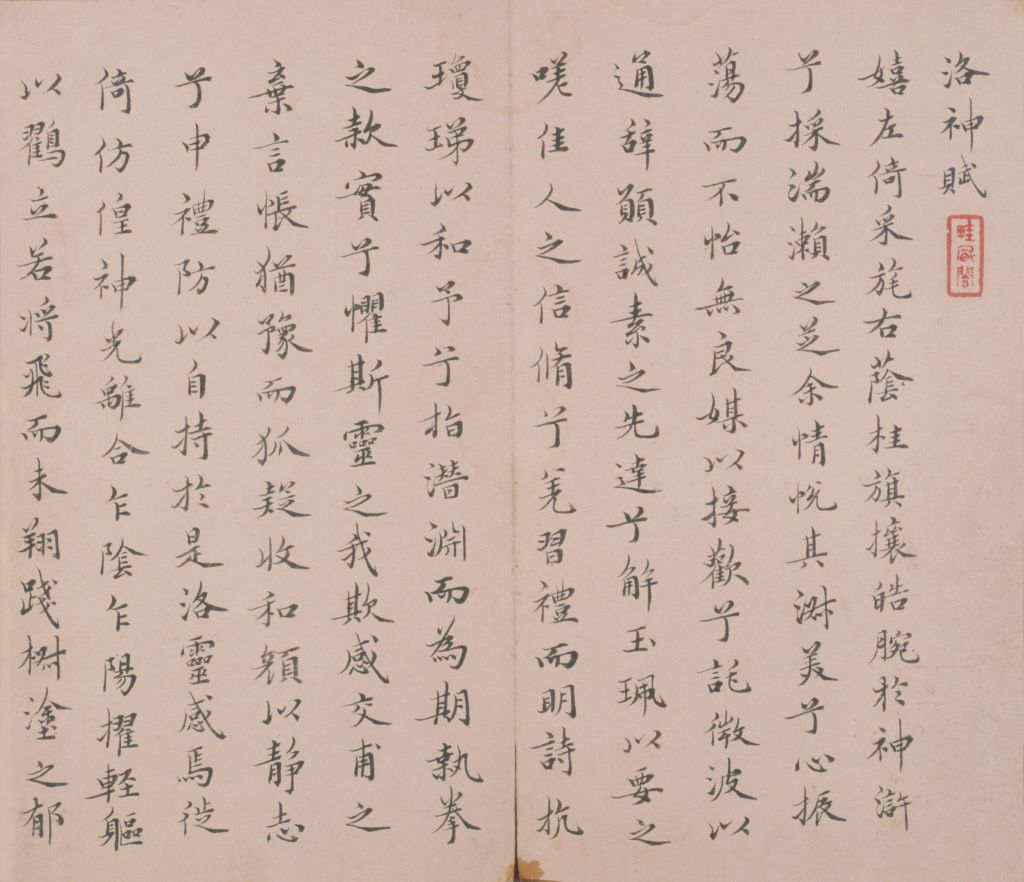 洛神賦
嬉左倚采旄右蔭桂旗攘皓腕於神滸
兮採湍瀨之芝余情悅其淑美兮心振
蕩而不怡無良媒以接歡兮託微波以
通辭願誠素之先達兮解玉珮以要之
嗟佳人之信脩兮羌習禮而明詩抗
瓊珶以和予兮指潛淵而為期執拳
之款實兮懼斯靈之我欺感交甫之
棄言悵猶豫而狐疑收和顏以静志
兮申禮防以自持於是洛靈感焉徙
倚仿偟神光離合乍陰乍陽擢軽軀
以鸖立若将飛而未翔踐椒塗之郁